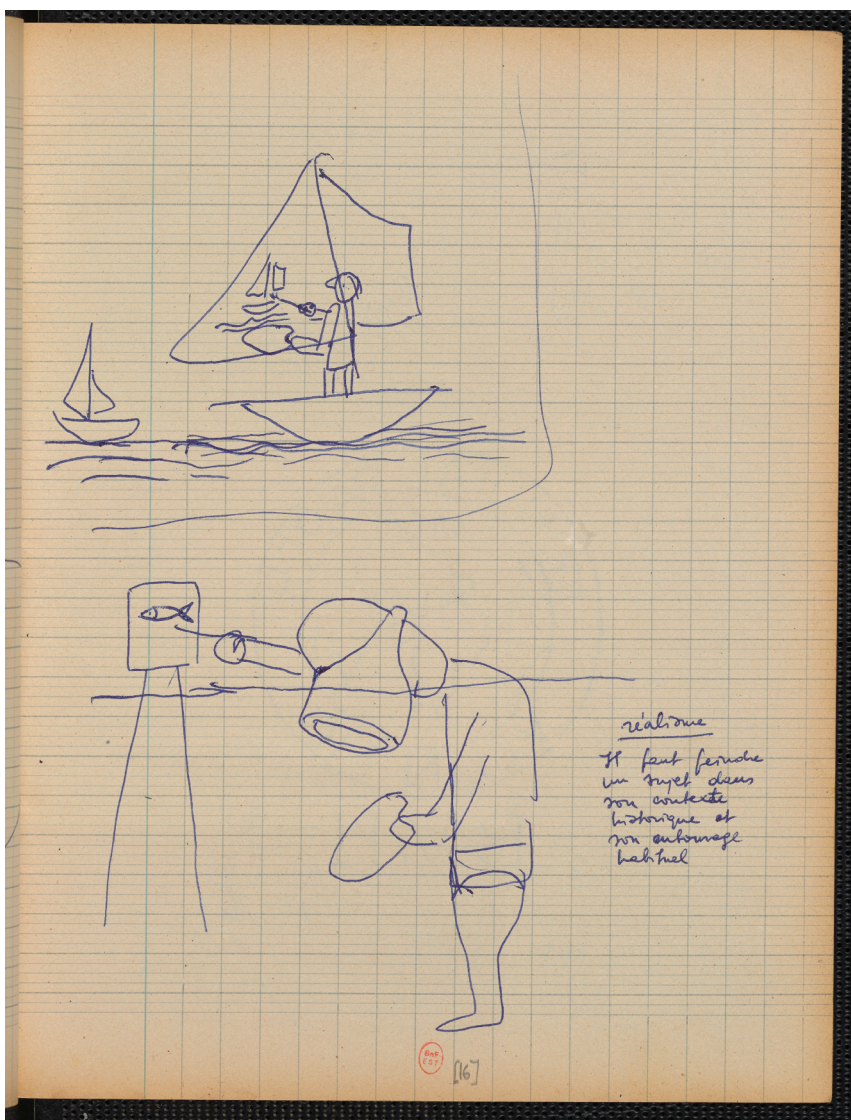 réalisme
Il faut peindre
un sujet dans
son contexte
historique et
son entourage
habituel
BnF
EST
[16]